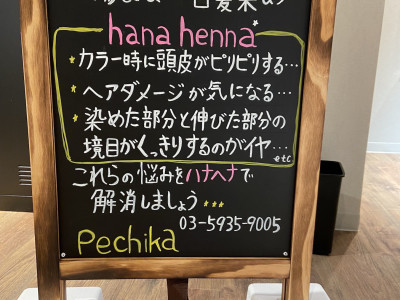 白髪染め
hana henna
カラー時に頭皮がピリピリする…
ヘアダメージが気になる…
染めた部分と伸びた部分の
境目がくっきりするのがイヤ…
etc
これらの悩みをハナヘナで
解消しましょう…
03-5935-9005
Pechika